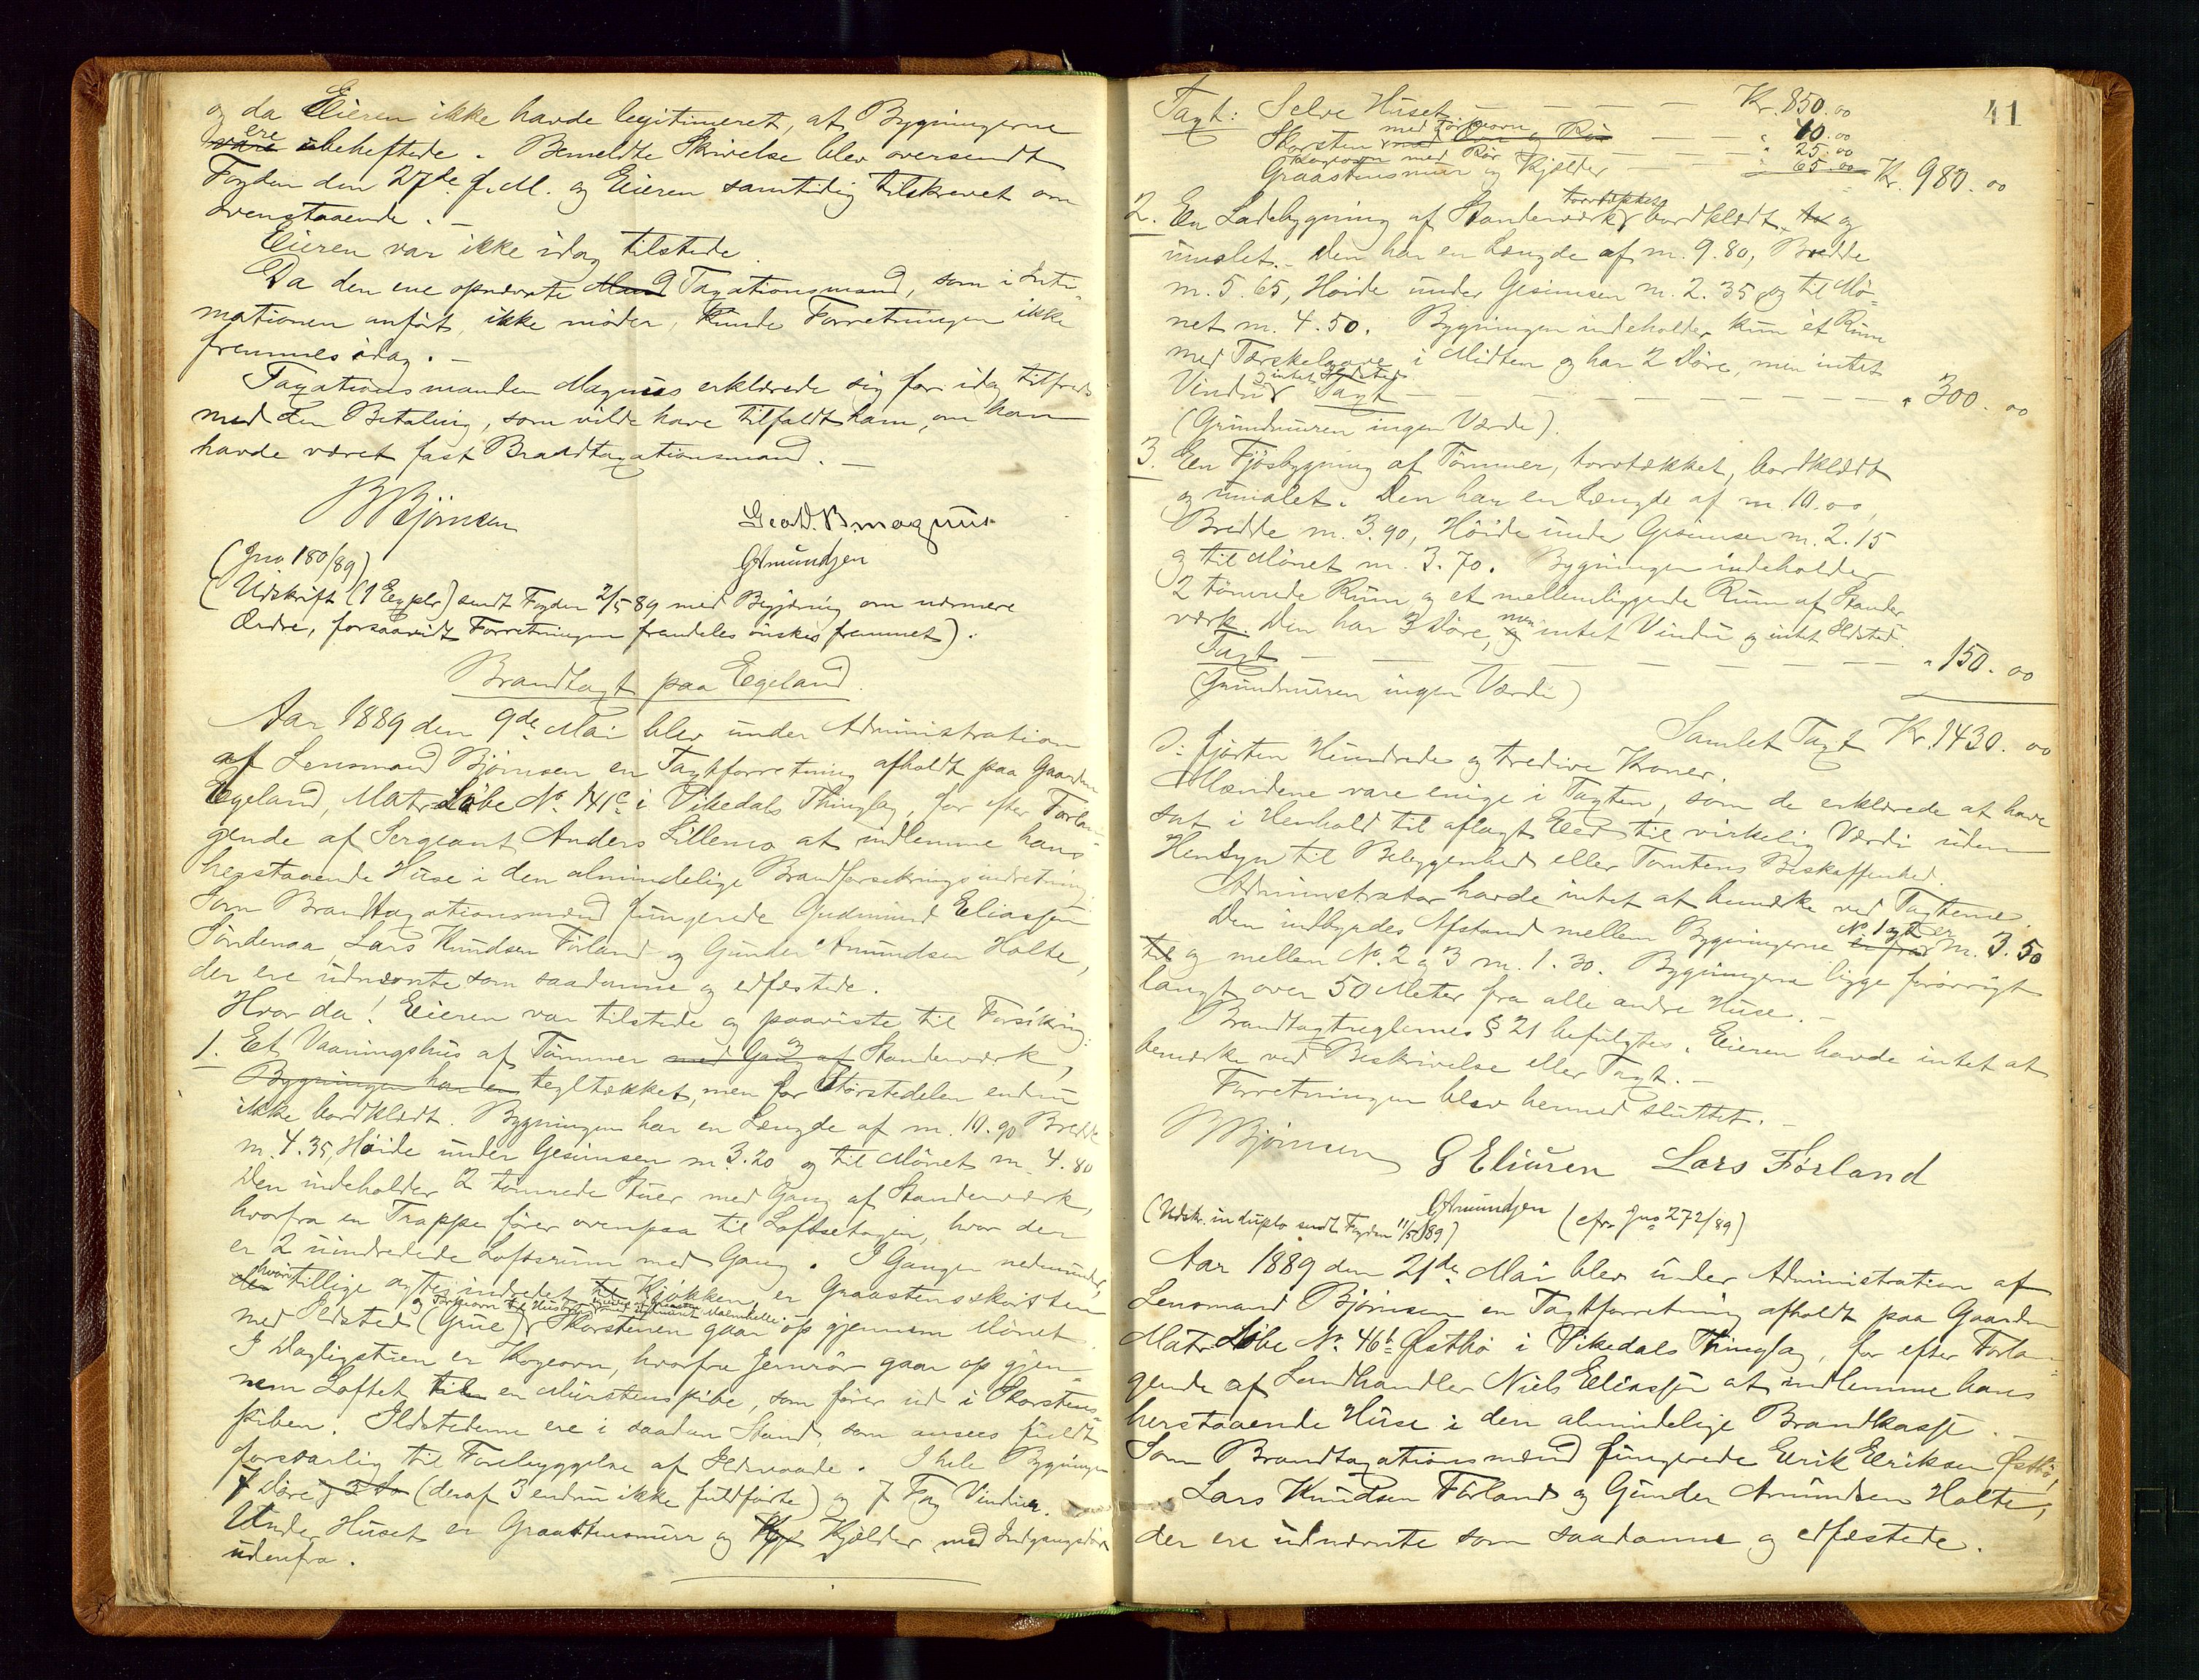 og da Eieren ikke havde legitimeret, at Bygningerne
ere ubeheftede. Bemeldte Skrivelse blev oversendt
Fogden den 27de f. M. og Eieren samtidig tilskrevet om
ovenstaaende. –
Eieren var ikke idag tilstede.
Da den ene opnævnte Mand Taxationsmand, som i Inti-
mationen anført, ikke møder, kunde Forretningen ikke
fremmes idag. –
Taxationsmanden Magnus erklærede sig for idag tilfreds
med den Betaling, som vilde have tilfaldt ham, om han
havde været fast Brandtaxationsmand. –
B Bjørnsen
Geo. D. B. magnus
GAmundsen
(Jno 180/89)
(Udskrift (1 Expl.) sendt Fogden 2/5 89 med Begjæring om nærmere
Ordre, forsaavidt Forretningen fremdeles ønskes fremmet).
Brandtaxt paa Egeland.
Aar 1889 den 9de Mai blev under Administration
af Lensmand Bjørnsen en Taxtforretning afholdt paa Gaarden
Egeland, Matr. Løbe No. 141c i Vikedals Thinglag, for efter Forlan-
gende af Sergeant Anders Lillemo at indlemme hans
herstaaende Huse i den almindelige Brandforsikringsindretning.
Som Brandtaxationsmænd fungerede Gudmund Eliassen
Søndenaa, Lars Knudsen Førland og Gunder Amundsen Holte,
der ere udnævnte som saadanne og edfæstede.
Hvor da! Eieren var tilstede og paaviste til Forsikring:
1. Et Vaaningshus af Tømmer med Gang af Standerværk,
Bygningen har en tegltækket, men for Størstedelen endnu
ikke bordklædt. Bygningen har en Længde af m. 10.90 Bredde
m. 4.35, Høide under Gesimsen m. 3.20 og til Mønet m. 4.80
Den indeholder 2 tømrede Stuer med Gang af Standerværk,
hvorfra en Trappe fører ovenpaa til Loftsetagen, hvor der
er 2 uindredede Loftsrum med Gang. I Gangen nedenunder,
der hvor tillige agtes indredet til Kjøkken, er Graastensskorsten
og Førgeovn
med Ildsted (Grue). Skorstenen gaar op gjennem Mønet
I Dagligstuen er Kogeovn, hvorfra Jernrør gaar op gjen-
nem Loftet til en Murstenspibe, som fører ud i Skorstens-
piben. Ildstederne ere i saadan Stand, som ansees fuldt
forsvarlig til Forebyggelse af Ildsvaade. I hele Bygningen
7 Døre (deraf 3 endnu ikke fuldførte) og 7 Fag Vinduer.
Under Huset er Graastensmur og Kjælder med Indgangsdør
udenfra.
41
Taxt: Selve Huset – – – – Kr. 850.00
med Førgeovn
Skorsten med Rør – – " 40.00
Kogeovn med Rør – " 25.00
Graastensmur og Kjælder – – " 65.00 Kr. 980.00
torvtækket
2. En Ladebygning af Standerværk, bordklædt og
umalet. – Den har en Længde af m. 9.80, Bredde
m. 5.65, Høide under Gesimsen m. 2.35 og til Mø-
net m. 4.50. Bygningen indeholder kun et Rum
med Tærskelaave i Midten og har 2 Døre, men intet
og intet Ildsted
Vindu. Taxt – – – – – – – " 300.00
(Grundmuren ingen Værde).
3. En Fjøsbygning af Tømmer, torvtækket, bordklædt
og umalet. Den har en Længde af m. 10.00,
Bredde m. 3.90, Høide under Gesimsen m. 2.15
og til Mønet m. 3.70. Bygningen indeholder
2 tømrede Rum og et mellemliggende Rum af Stander-
værk. Den har 3 Døre, men intet Vindu og intet Ildsted.
Taxt – – – – – – – " 150.00
(Grundmuren ingen Værdi)
Samlet Taxt Kr. 1430.00
ɔ: fjorten Hundrede og tredive Kroner.
Mændene vare enige i Taxten, som de erklærede at have
sat i Henhold til aflagt Eed til virkelig Værdi uden
Hensyn til Beliggenhed eller Tomtens Beskaffenhed.
Administrator havde intet at bemærke ved Taxterne.
Den indbyrdes Afstand mellem Bygningerne No. 1 og 2 er m. 3.50
til og mellem No. 2 og 3 m. 1.30. Bygningerne ligge forøvrigt
langt over 50 Meter fra alle andre Huse. –
Brandtaxtreglernes § 21 befulgtes. Eieren havde intet at
bemærke ved Beskrivelse eller Taxt. –
Forretningen blev hermed sluttet. –
B Bjørnsen G Eliasen Lars Førland
GAmundsen
(Udskr. in duplo sendt Fogden 11/5 89) (cfr. Jno 272/89)
Aar 1889 den 21de Mai blev under Administration af
Lensmand Bjørnsen en Taxtforretning afholdt paa Gaarden
Matr. Løbe No. 46b Østhø i Vikedals Thinglag, for efter Forlan-
gende af Landhandler Niels Eliassen at indlemme hans
herstaaende Huse i den almindelige Brandkasse. –
Som Brandtaxationsmænd fungerede Eerik Eeriksen Østhø,
Lars Knudsen Førland og Gunder Amundsen Holte,
der ere udnævnte som saadanne og edfæstede.